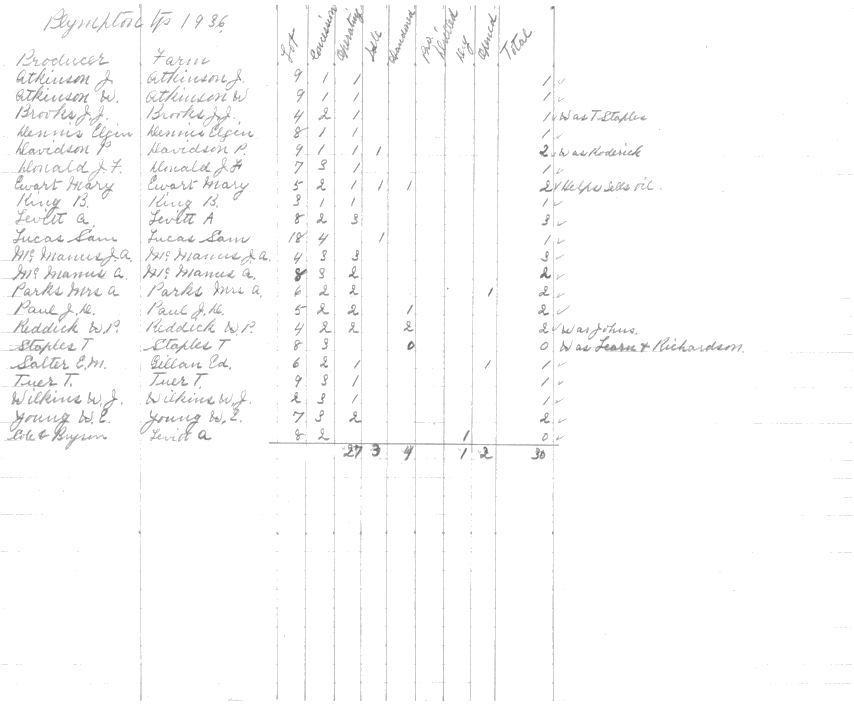 Plympton Tp 1936
Lot Concession Operating Idle Abandoned Pro. Drilled Dry Opened Total
Producer Farm
Atkinson J. Atkinson J. 9 1 1 1 ✓
Atkinson W. Atkinson W 9 1 1 1 ✓
Brooks J.J. Brooks J.J. 4 2 1 1 ✓ Was T Staples
Dennis Elgin Dennis Elgin 8 1 1 1 ✓
Davidson P Davidson P. 9 1 1 1 2 ✓ Was Roderick
Donald J.F. Donald J F 7 3 1 1 ✓
Ewart Mary Ewart Mary 5 2 1 1 1 2 ✓ Helps sells oil.
King B. King B. 3 1 1 1 ✓
Levitt A. Levitt A 8 2 3 3 ✓
Lucas Sam Lucas Sam 18 4 1 1 ✓
Mc Manus J.A. Mc Manus J.A. 4 3 3 3 ✓
Mc Manus A. Mc Manus A. 8 3 2 2 ✓
Parks Mrs A Parks Mrs A. 6 2 2 1 2 ✓
Paul J.H. Paul J.H. 5 2 2 1 2 ✓
Reddick W.P. Reddick W P. 4 2 2 2 2 ✓ Was Johns.
Staples T Staples T 8 3 0 0 Was Learn & Richardson.
Salter E.M. Gillan Ed. 6 2 1 1 1 ✓
Tuer T. Tuer T. 9 3 1 1 ✓
Wilkins W.J. Wilkins W.J. 2 3 1 1 ✓
Young W.E. Young W.E. 7 3 2 2 ✓
Cole & Bryson Levitt A 8 2 1 0 ✓
27 3 4 1 2 30